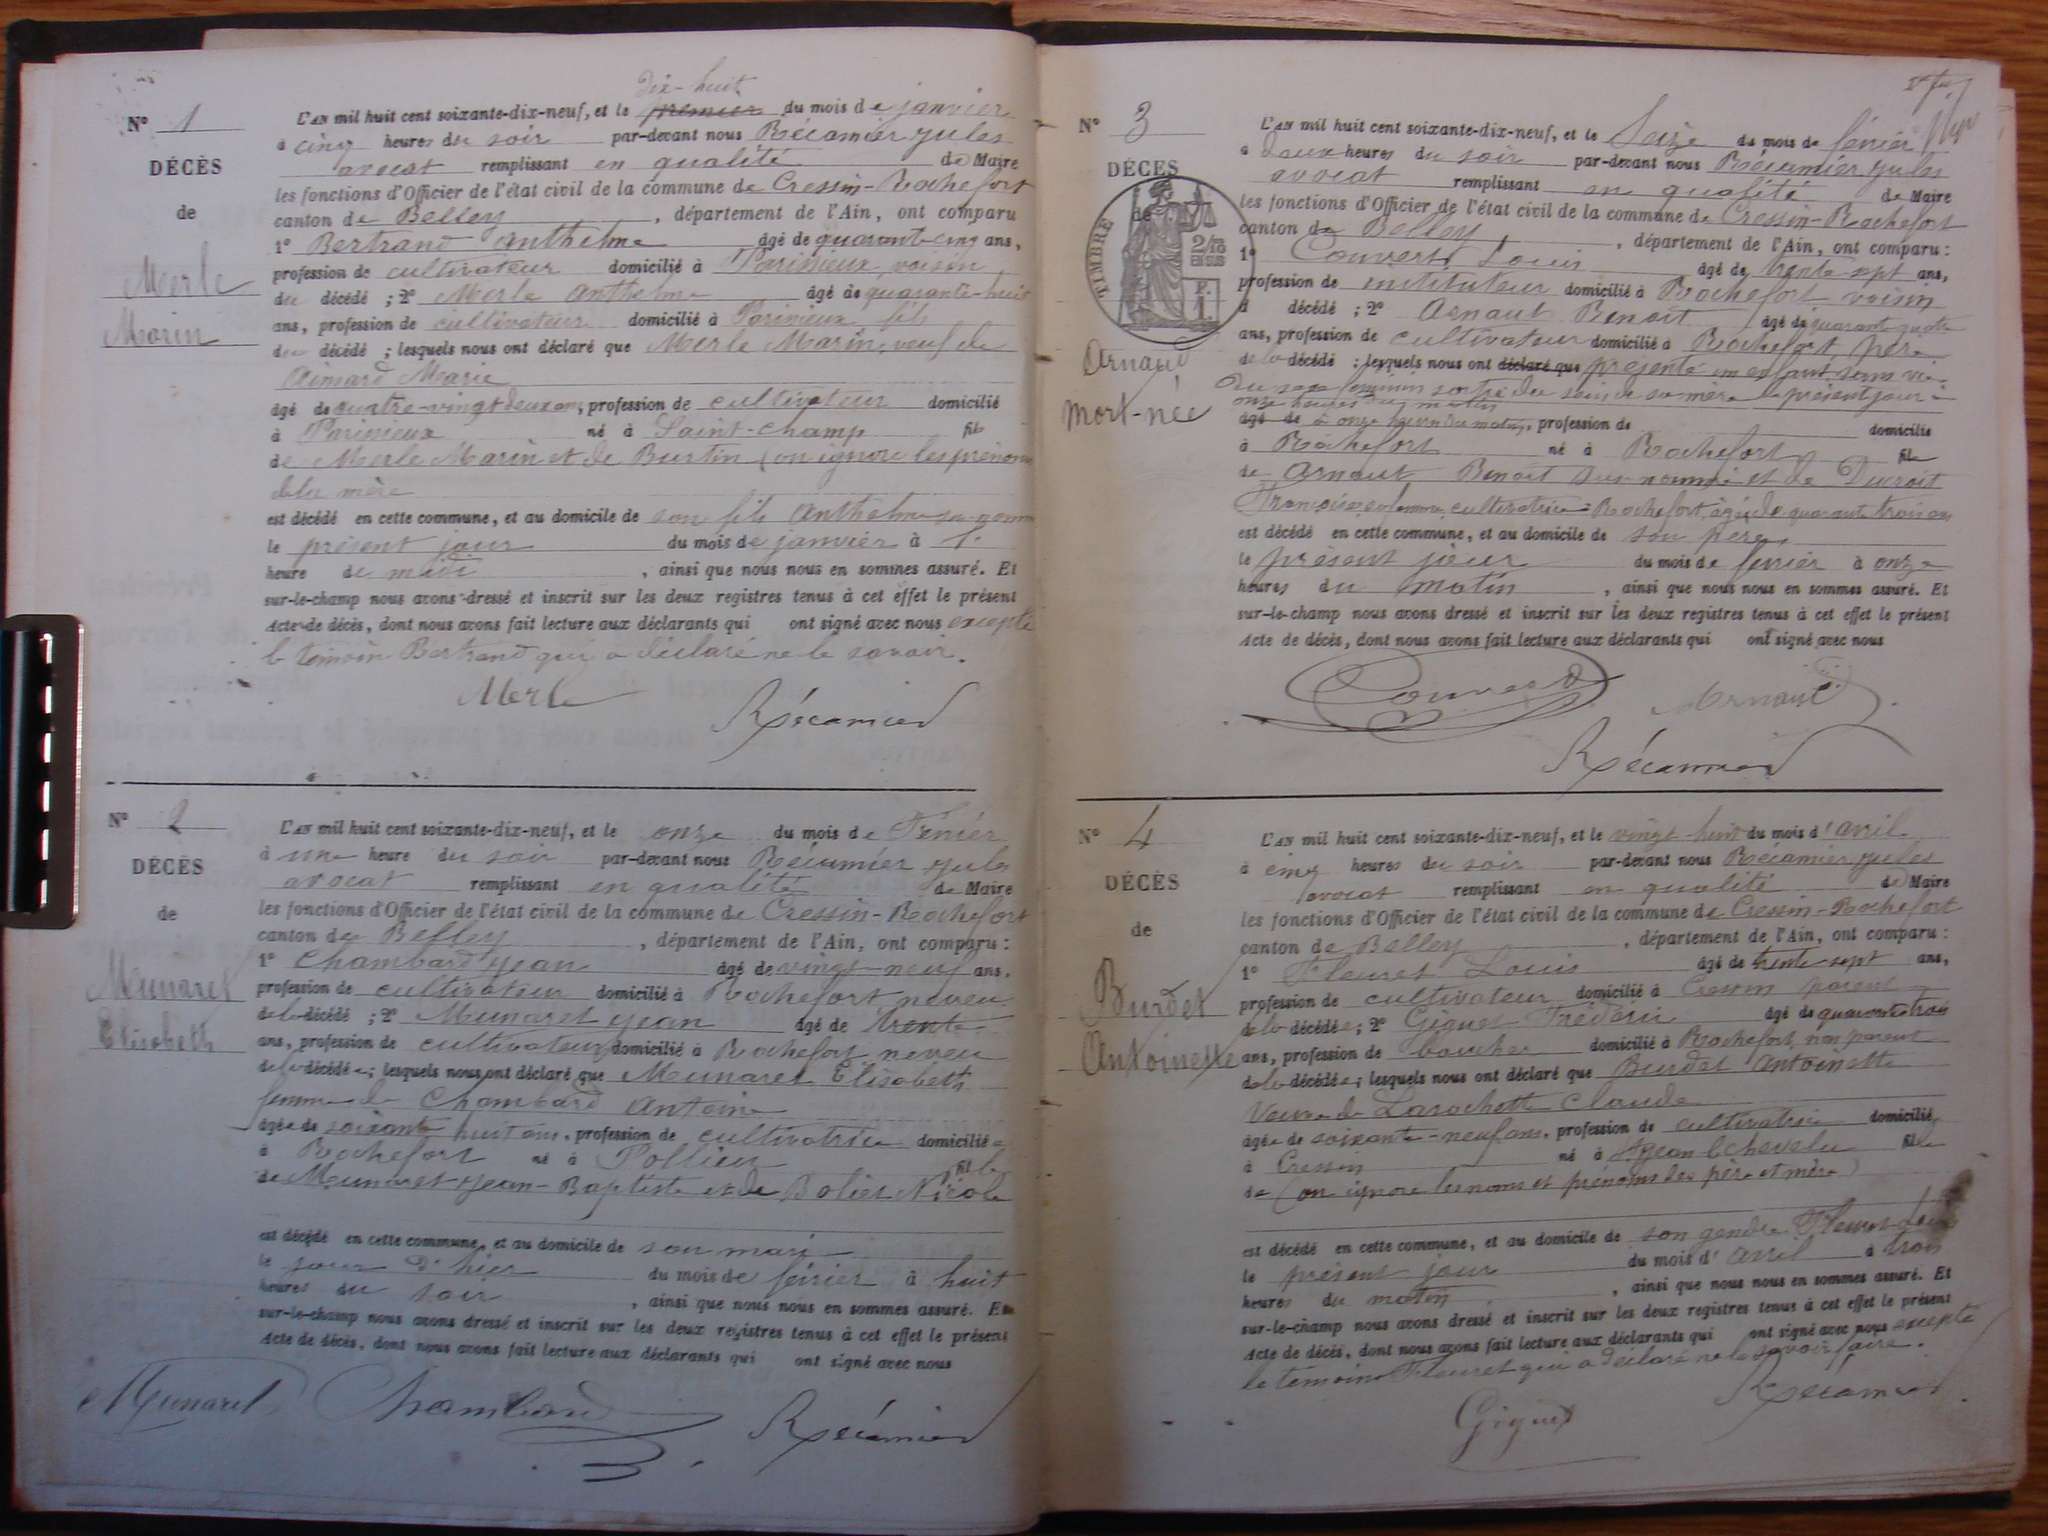 dix-huit
N° 1
L'AN mil huit cent soixante-dix-neuf, et le premier du mois de janvier
à cinq heures du soir par-devant nous Récamier Jules
DÉCÈS
avocat remplissant en qualité de Maire
les fonctions d'Officier de l'état civil de la commune de Cressin-Rochefort
de
canton de Belley, département de l'Ain, ont comparu
1° Bertrand Anthelme âgé de quarante cinq ans,
Merle
profession de cultivateur domicilié à Parissieux voisin
du décédé ; 2° Merle Anthelme âgé de quarante-huit
Marin
ans, profession de cultivateur domicilié à Parissieux fils
du décédé ; lesquels nous ont déclaré que Merle Marin, veuf de
Aimard Marie
âgé de quatre-vingt deux ans, profession de cultivateur domicilié
à Parissieux né à Saint-Champ fils
de Merle Marin et de Burtin (on ignore les prénoms
de la mère
est décédé en cette commune, et au domicile de son fils Anthelme
le présent jour du mois de janvier à 1.
heure de midi, ainsi que nous nous en sommes assuré. Et
sur-le-champ nous avons dressé et inscrit sur les deux registres tenus à cet effet le présent
Acte de décès, dont nous avons fait lecture aux déclarants qui ont signé avec nous excepté
le témoin Bertrand qui a déclaré ne le savoir.
Merle
Récamier
N° 2
L'AN mil huit cent soixante-dix-neuf, et le onze du mois de Février
à une heure du soir par-devant nous Récamier Jules
DÉCÈS
avocat remplissant en qualité de Maire
les fonctions d'Officier de l'état civil de la commune de Cressin-Rochefort
de
canton de Belley, département de l'Ain, ont comparu :
1° Chambard Jean âgé de vingt-neuf ans,
Munaret
profession de cultivateur domicilié à Rochefort neveu
de la décédé ; 2° Munaret Jean âgé de trente
Elisabeth
ans, profession de cultivateur domicilié à Rochefort neveu
de la décédée ; lesquels nous ont déclaré que Munaret Elisabeth
femme de Chambard Antoine
âgée de soixante huit ans, profession de cultivatrice domiciliée
à Rochefort né à Pollieu fille
de Munaret Jean-Baptiste et de Bolier Nicole
est décédé en cette commune, et au domicile de son mari
le jour d'hier du mois de février à huit
heures du soir, ainsi que nous nous en sommes assuré. Et
sur-le-champ nous avons dressé et inscrit sur les deux registres tenus à cet effet le présent
Acte de décès, dont nous avons fait lecture aux déclarants qui ont signé avec nous
Munaret Chambard Récamier
N° 3
L'AN mil huit cent soixante-dix-neuf, et le Seize du mois de février
à deux heures du soir par-devant nous Récamier Jules
DÉCÈS
avocat remplissant en qualité de Maire
les fonctions d'Officier de l'état civil de la commune de Cressin-Rochefort
de
canton de Belley, département de l'Ain, ont comparu :
TIMBRE
1° Convert Louis âgé de trente-sept ans,
profession de instituteur domicilié à Rochefort voisin
d décédé ; 2° Arnaut Benoit âgé de quarante quatre
ans, profession de cultivateur domicilié à Rochefort, père
Arnaud
de la décédé ; lesquels nous ont déclaré que présenté un enfant sans vie
du sexe féminin sortie du sein de sa mère le présent jour à
onze heures du matin
mort-née
âgé de à onze heures du matin, profession de domicilié
à Rochefort né à Rochefort fille
de Arnaut Benoit sus-nommé et de Ducroit
Françoise sa femme, cultivatrice à Rochefort, âgée de quarante trois ans
est décédé en cette commune, et au domicile de son père
le présent jour du mois de février à onze
heures du matin, ainsi que nous nous en sommes assuré. Et
sur-le-champ nous avons dressé et inscrit sur les deux registres tenus à cet effet le présent
Acte de décès, dont nous avons fait lecture aux déclarants qui ont signé avec nous
Convert Arnaud
Récamier
N° 4
L'AN mil huit cent soixante-dix-neuf, et le vingt-huit du mois d'avril
à cinq heures du soir par-devant nous Récamier Jules
DÉCÈS
avocat remplissant en qualité de Maire
les fonctions d'Officier de l'état civil de la commune de Cressin-Rochefort
de
canton de Belley, département de l'Ain, ont comparu :
1° Fleuret Louis âgé de trente-sept ans,
Burdet
profession de cultivateur domicilié à Cressin parent
de la décédée ; 2° Giguet Frédéric âgé de quarante-trois
Antoinette
ans, profession de boucher domicilié à Rochefort, non parent
de la décédée ; lesquels nous ont déclaré que Burdet Antoinette
Veuve de Larochette Claude
âgée de soixante-neuf ans, profession de cultivatrice domiciliée
à Cressin né à St Jean le Chevelu fille
de (on ignore les noms et prénoms des père et mère)
est décédé en cette commune, et au domicile de son gendre Fleuret Louis
le présent jour du mois d'avril à trois
heures du matin, ainsi que nous nous en sommes assuré. Et
sur-le-champ nous avons dressé et inscrit sur les deux registres tenus à cet effet le présent
Acte de décès, dont nous avons fait lecture aux déclarants qui ont signé avec nous excepté
le témoin Fleuret qui a déclaré ne le savoir faire.
Giguet Récamier